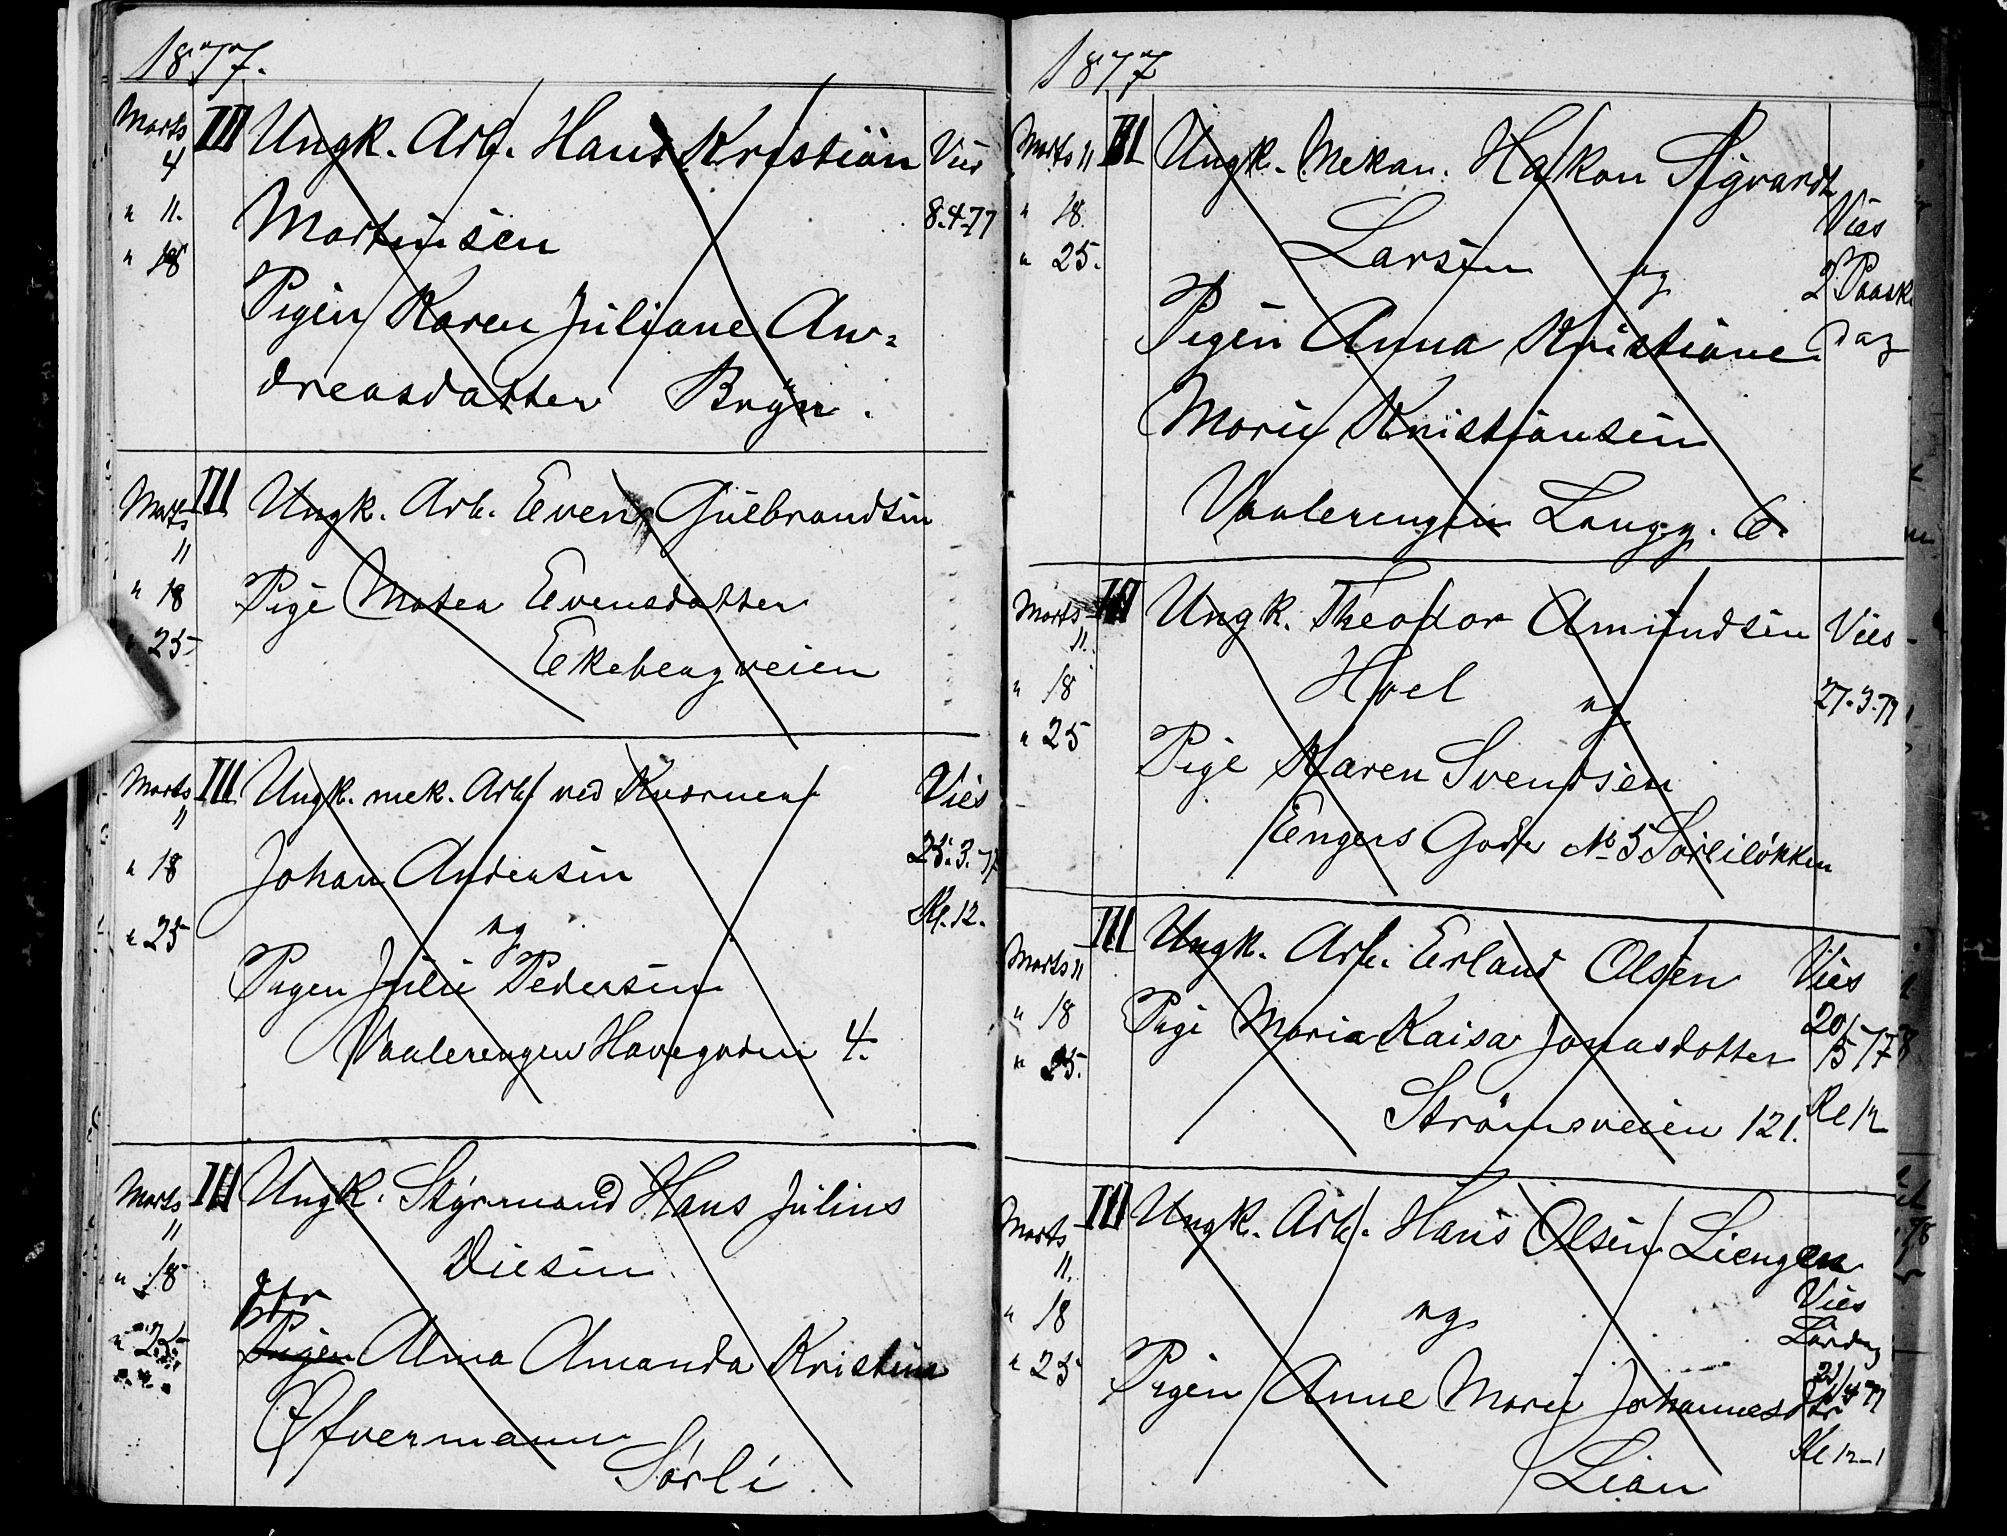 1877.
Marts 4 III Ungk. Arb. Hans Kristian Vies
" 11. Martinsen 8.4.77
" 18
Pigen Karen Juliane An=
dreasdatter Bryn.
Marts 11 III Ungk. Arb. Even Gulbrandsen
" 18 Pige Matea Evensdatter
" 25 Ekebergveien
Marts 11 III Ungk. mek. Arb. ved Kværner Vies
" 18 Johan Andersen 25.3.77
" 25 og Kl. 12.
Pigen Julie Pedersen
Vaalerengen Havegaden 4.
Marts 11 III Ungk. Styrmand Hans Julius
" 18 Diesen
dtr
" 25 Pigen Alma Amanda Kristina
Øfvermann
Sørli
1877
Marts 11 III Ungk. Mekan. Hakon Sigvardt
" 18. Larsen og Vies
" 25. 2 Paaske
Pigen Anna Kristiane dag
Marie Kristiansen
Vaalerengen Langg. 6.
Marts 11. III Ungk. Theodor Amundsen Vies
" 18 Hoel og 27.3.77
" 25 Pige Karen Svendsen
Engers Gade No 5 Sørliløkken
Marts 11 III Ungk. Arb. Erland Olsen Vies
" 18 Pige Maria Kaisa Jonasdotter 20/5 78
" 25. Strømsveien 121. Kl 12
Marts 11. III Ungk. Arb. Hans Olsen Liengen
" 18 og Vies
Lørdag
" 25 Pigen Anne Marie Johannesdtr 21/4 77
Lian Kl 12-1